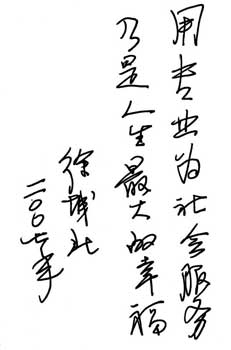 用专业为社会服务
乃是人生最大的幸福
徐城北
二〇〇七年